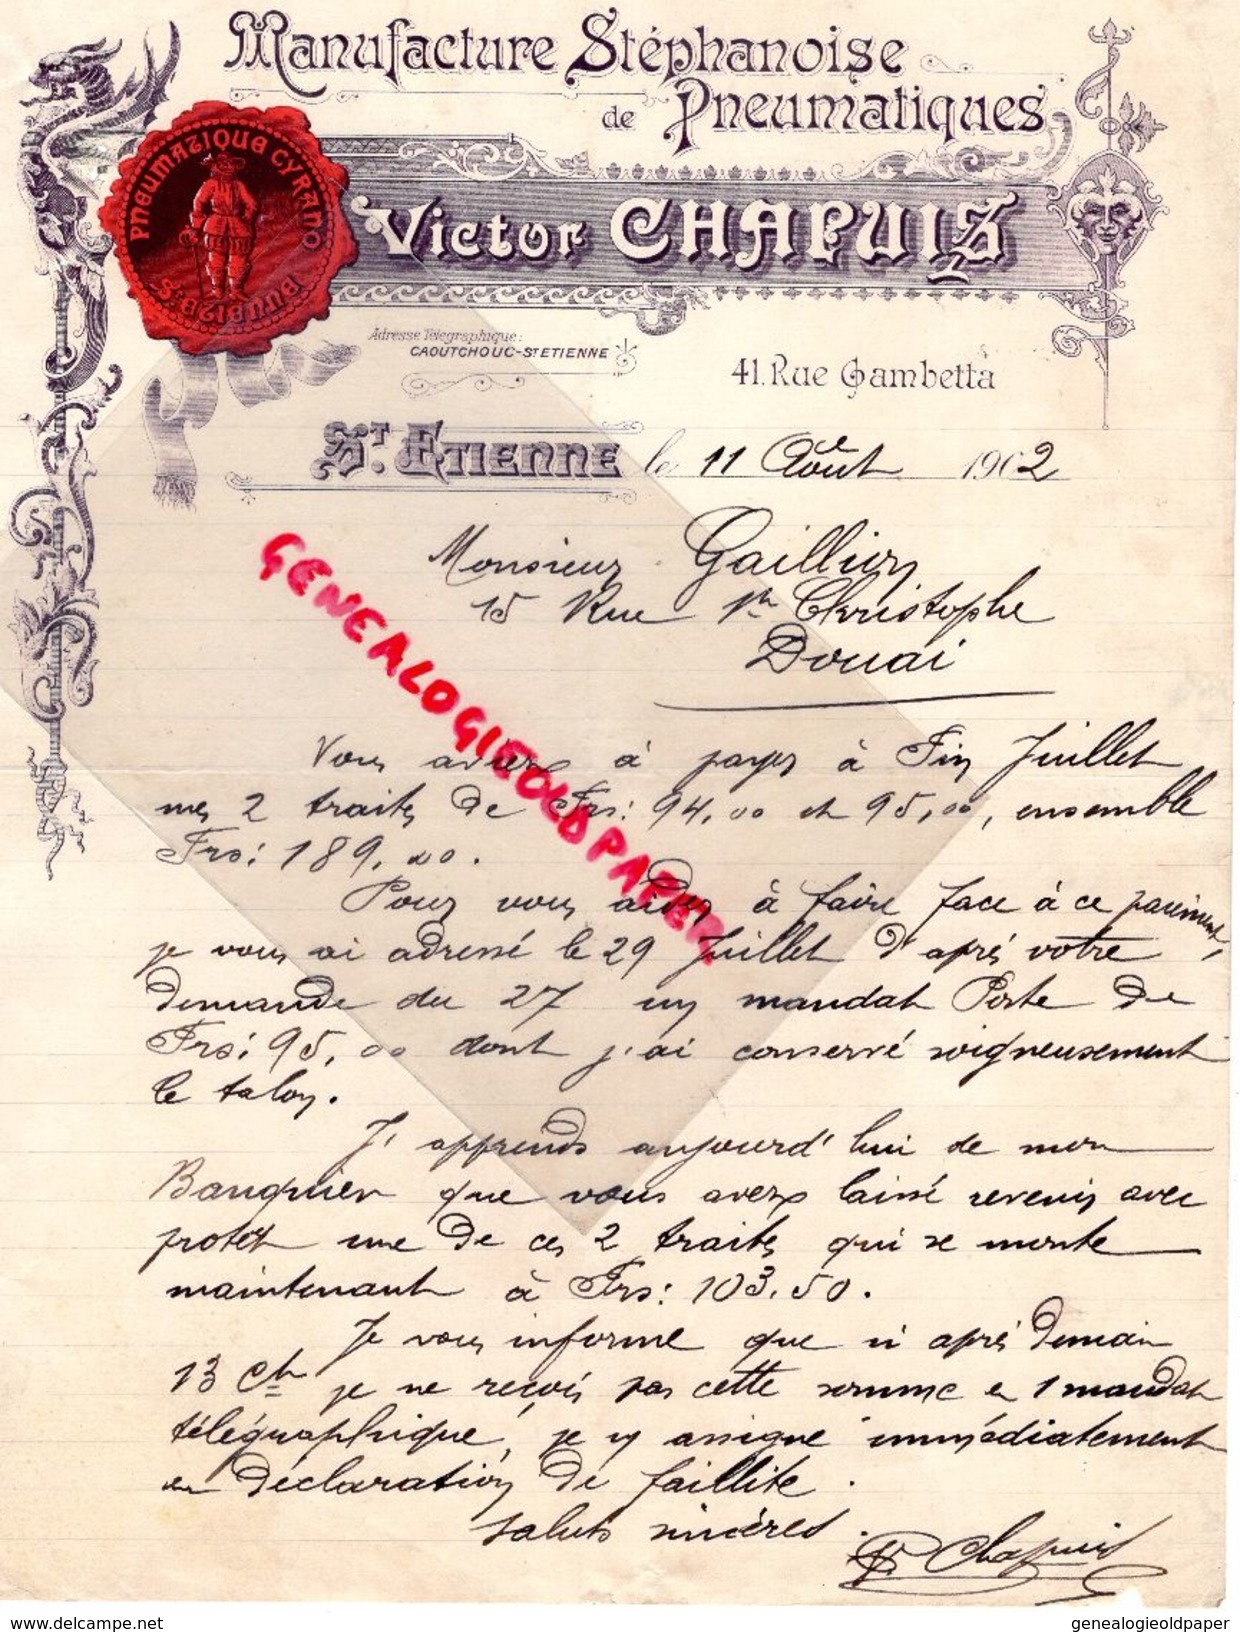 Manufacture Stéphanoise
de Pneumatiques
PNEUMATIQUE CYRANO
ST ETIENNE
Victor CHAPUIS
Adresse Télégraphique:
CAOUTCHOUC-ST ETIENNE
41. Rue Gambetta
ST. ETIENNE le 11 Août 1902
Monsieur Gaillion
15 Rue St Christophe
Douai
Vous aviez à payer à Fin Juillet
mes 2 traites de Frs: 94,00 et 95,00, ensemble
Frs: 189,00.
Pour vous aider à faire face à ce paiement,
je vous ai adressé le 29 Juillet d'après votre
demande du 27 un mandat Poste de
Frs: 95,00 dont j'ai conservé soigneusement
le talon.
J'apprends aujourd'hui de mon
Banquier que vous avez laissé revenir avec
protêt une de ces 2 traites qui se monte
maintenant à Frs: 103.50.
Je vous informe que si après demain
13 Ct je ne reçois pas cette somme en 1 mandat
télégraphique, je v assigne immédiatement
en déclaration de faillite.
Saluts sincères.
V. Chapuis
GENEALOGIEOLDPAPER
www.delcampe.net
genealogieoldpaper